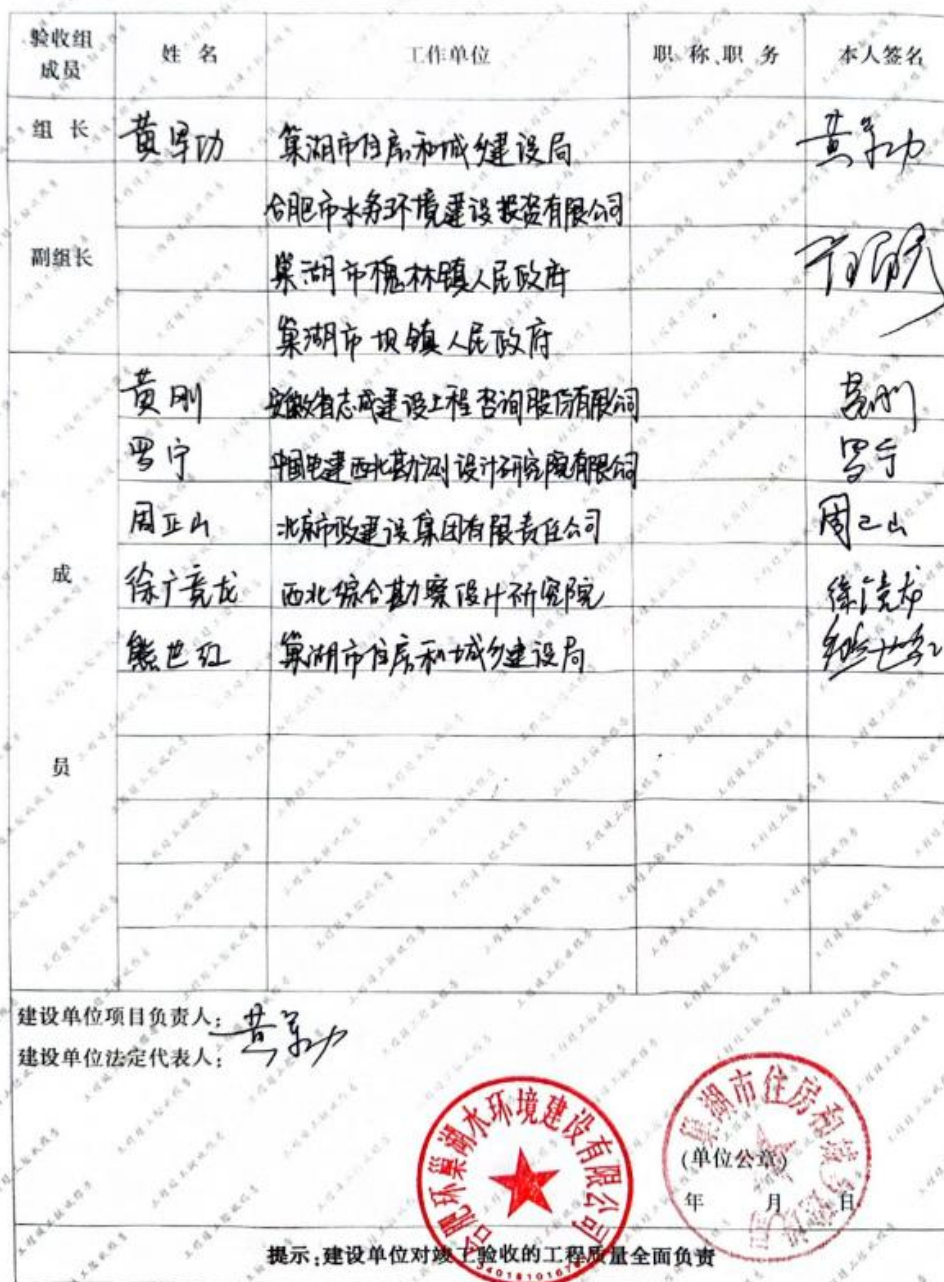 验收组成员 姓名 工作单位 职称、职务 本人签名
组长 黄军功 巢湖市住房和城乡建设局 黄军功
合肥市水务环境建设投资有限公司
副组长 巢湖市槐林镇人民政府
巢湖市坝镇人民政府
黄刚 安徽省志成建设工程咨询股份有限公司 黄刚
罗宁 中国电建西北勘测设计研究院有限公司 罗宁
周正山 北京市政建设集团有限责任公司 周正山
成 徐广竟龙 西北综合勘察设计研究院
熊世红 巢湖市住房和城乡建设局 熊世红
员
建设单位项目负责人：黄军功
建设单位法定代表人：
合肥环巢湖水环境建设有限公司
巢湖市住房和城乡建设局
(单位公章)
年 月 日
提示：建设单位对竣工验收的工程质量全面负责